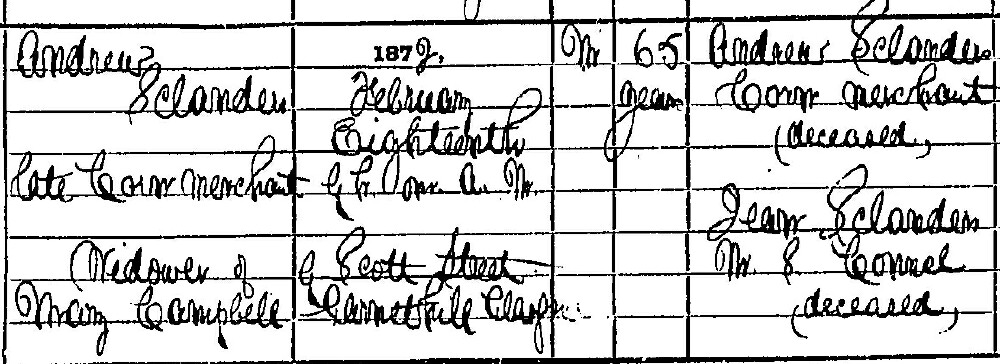 Andrew
Sclanders
late Corn Merchant
Widower of
Mary Campbell
1872,
February
Eighteenth
6 h. 0m. A. M.
6 Scott Street
Garnethill
M
65
years
Andrew Sclanders
Corn Merchant
(deceased)
Jean Sclanders
M. S. Connel
(deceased)